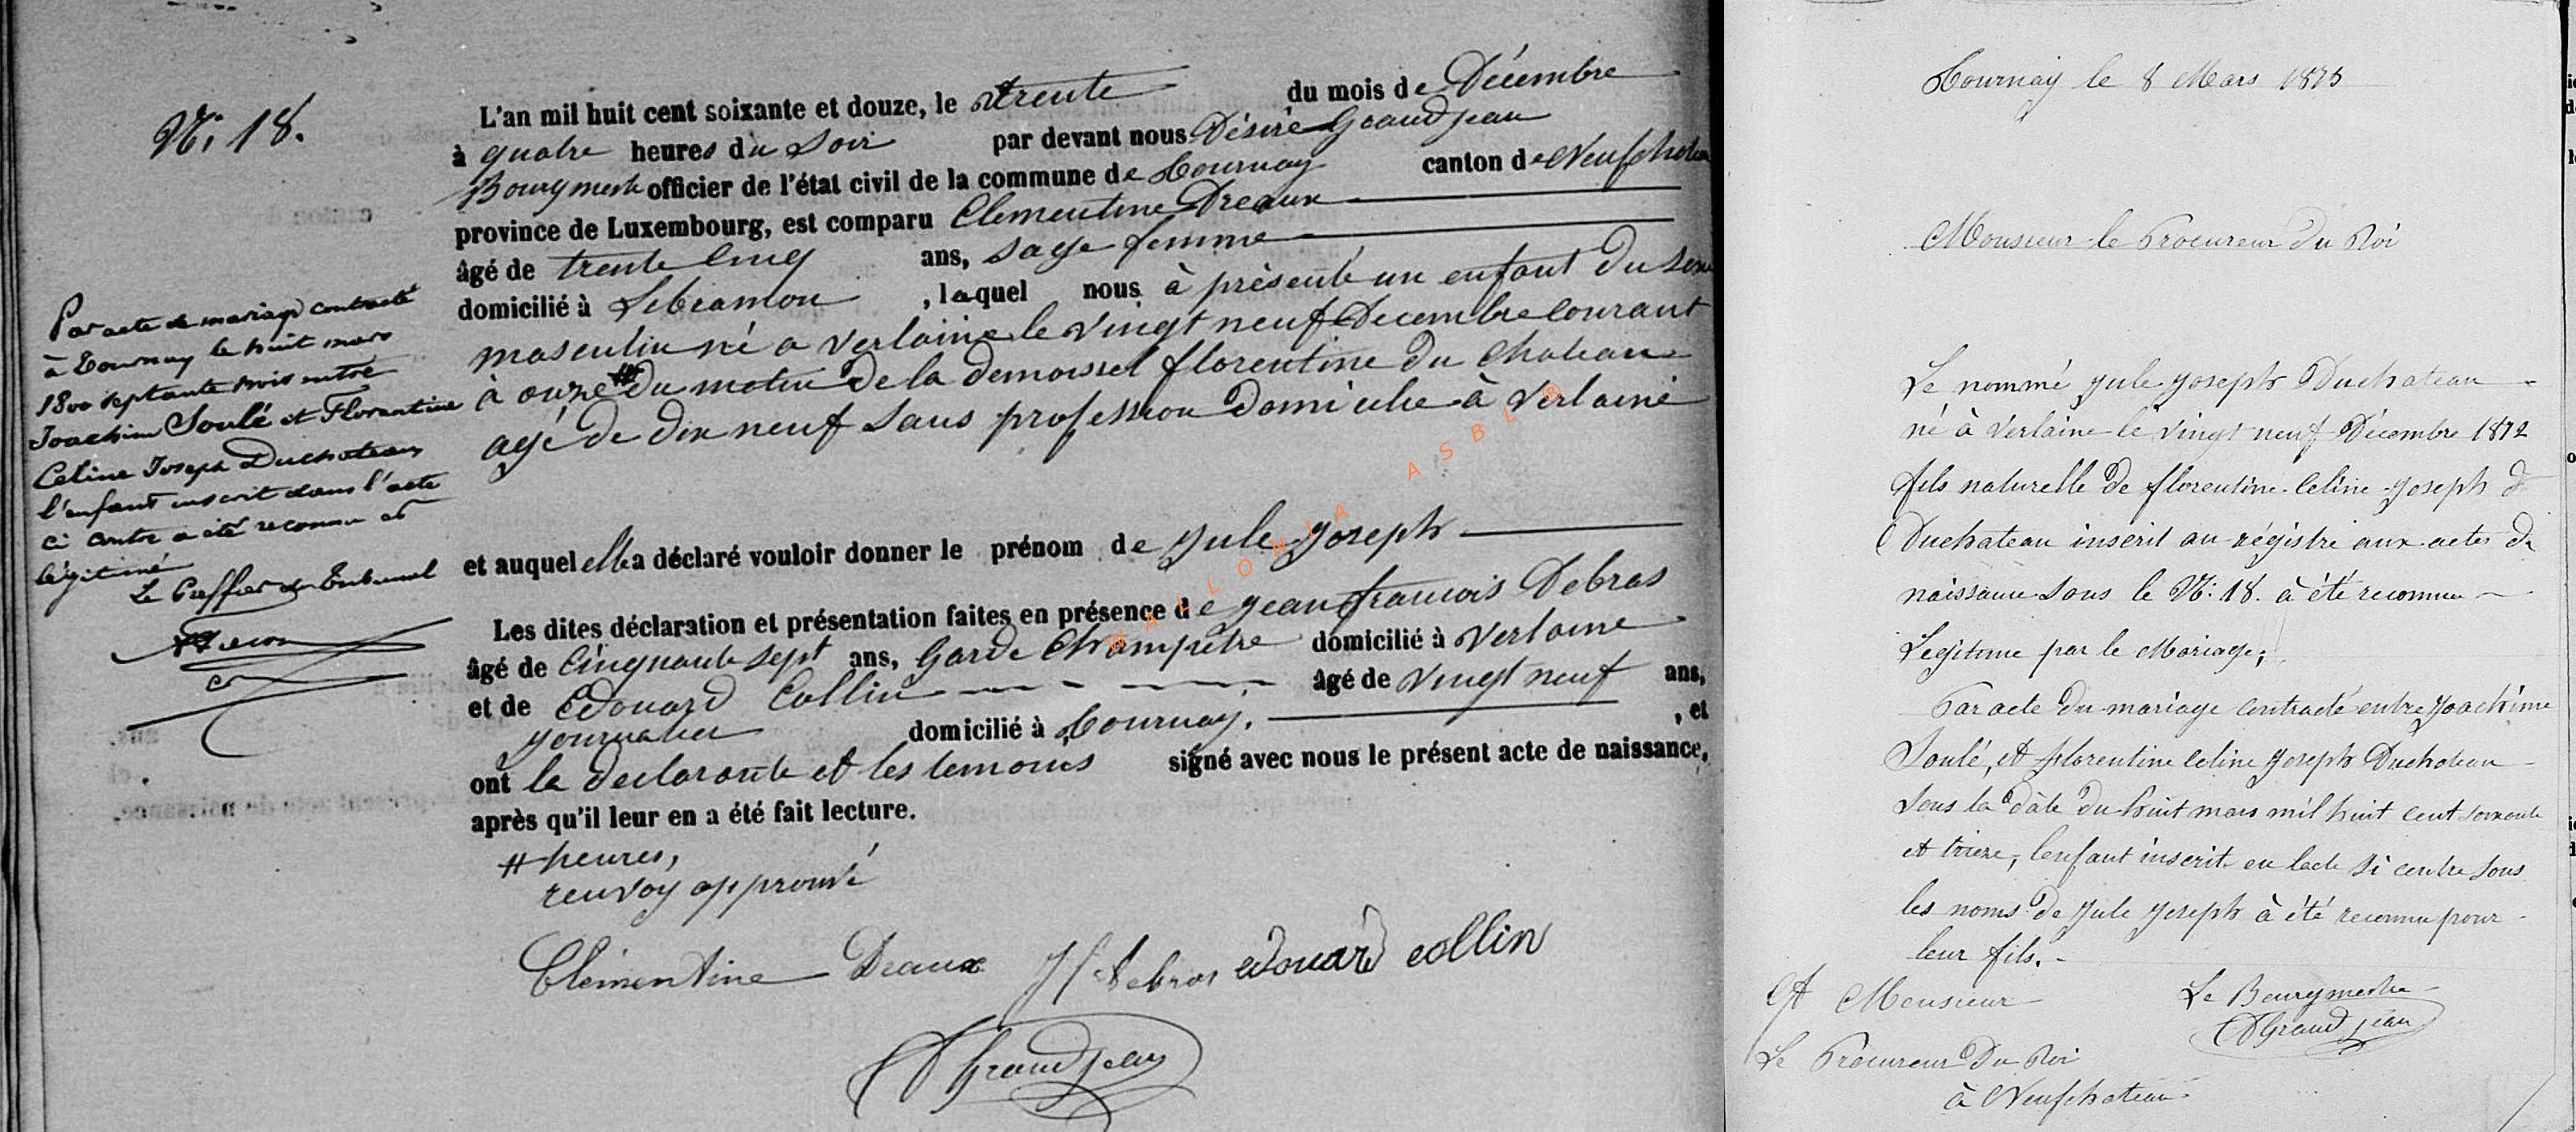 N: 18.
L'an mil huit cent soixante et douze, le trente du mois de Décembre
à quatre heures du Soir par devant nous Désiré Grandjean
Bourgmestre officier de l'état civil de la commune de Tournay canton de Neufchateau
province de Luxembourg, est comparu Clementine Dreaux
âgé de trente Cinq ans, sage femme
domicilié à Libramon , laquel nous à présenté un enfant du sexe
masculin né a Verlaine le vingt neuf Decembre Courant
à onze # du matin de la demoisel florentine du Chateau
agé de dix neuf sans profession domicilié à Verlaine
et auquel elle a déclaré vouloir donner le prénom de Jule Joseph
Les dites déclaration et présentation faites en présence de Jean francois Debras
âgé de Cinquante sept ans, Garde Champetre domicilié à Verlaine
et de Edouard Collin âgé de vingt neuf ans,
journalier domicilié à Tournay. , et
ont la declarante et les temoins signé avec nous le présent acte de naissance,
après qu'il leur en a été fait lecture.
# heures,
renvoy approuvé
Clémentine Dreaux Jf debras edouard collin
D Grandjean
Par acte de mariage contracté
à Tournay le huit mars
1800 septante trois entre
Joachim Soulé et Florentine
Celine Joseph Duchateau
l'enfant inscrit dans l'acte
ci contre a été reconnu et
légitimé
Le Greffier du Tribunal
WALLONIA ASBL ®
Tournay le 8 Mars 1873
Monsieur le Procureur du Roi
Le nommé Jule Joseph Duchateau
né à Verlaine le vingt neuf Décembre 1872
fils naturelle de florentine Celine Joseph D
Duchateau inscrit au régistre aux actes de
naissance sous le N: 18. à été reconnu
Legitime par le Mariage;
Par acte du mariage contracté entre Joachime
Soulé, et florentine Celine Joseph Duchateau
sous la dâte du huit mars mil huit cent soixante
et trieze, lenfant inscrit en lacte si contre sous
les noms de Jule Joseph à été reconnu pour
leur fils.
A Monsieur
Le Procureur Du Roi
à Neufchateau
Le Bourgmestre
D Grandjean